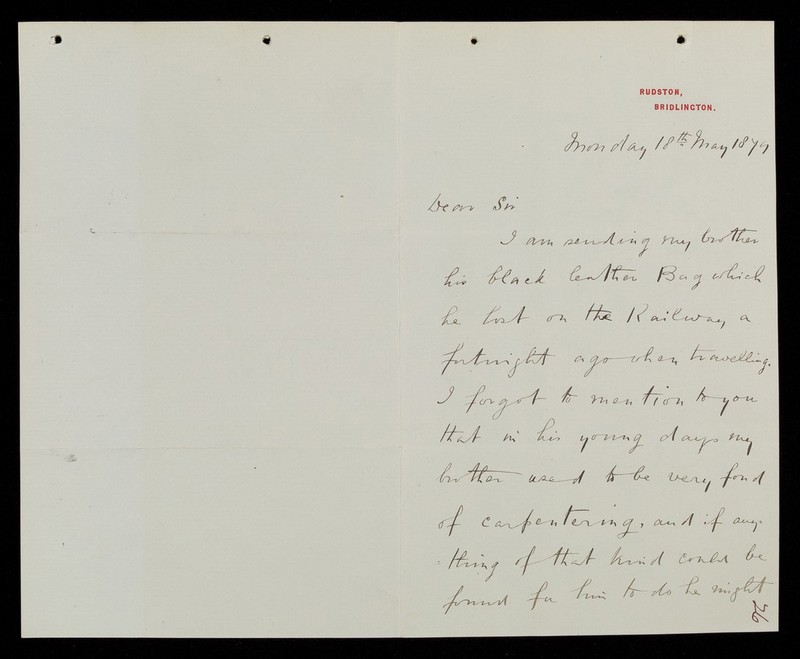 RUDSTON,
BRIDLINGTON.
Monday 18th May 1879
Dear Sir
I am sending my brother
his black leather Bag which
he lost on the Railway, a
fortnight ago when travelling.
I forgot to mention to you
that in his young days my
brother used to be very fond
of carpentering, and if any-
thing of that kind could be
found for him to do he might
26